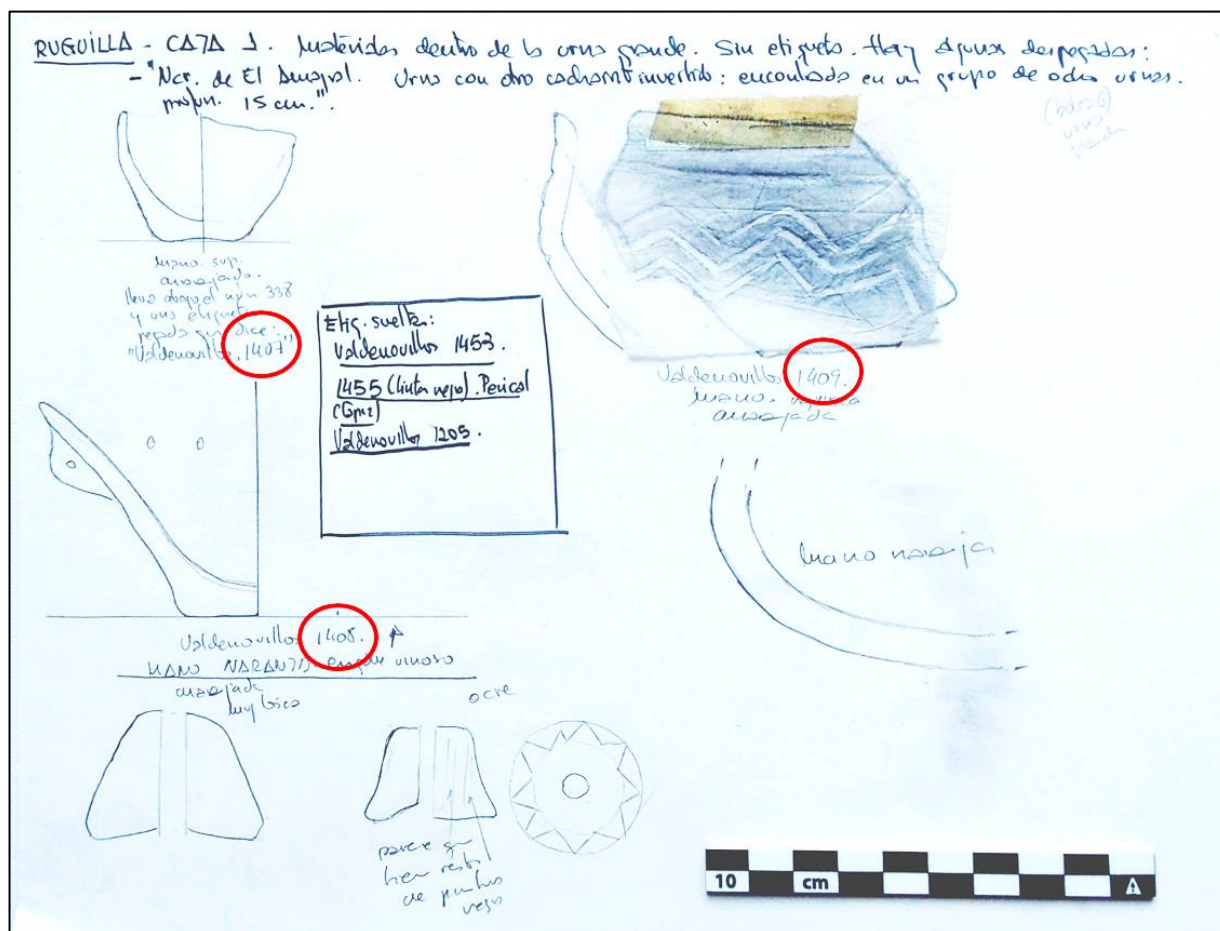 RUGUILLA - CAJA 1. Materiales dentro de la urna grande. Sin etiqueta. Hay algunas despegadas:
- "Ncr. de El Atance. Urna con otro cacharro invertido: encontrada en un grupo de ocho urnas.
prof. 15 cm.".
(bolsa 6)
urna
grande
mano. sup.
anaranjado.
lleva etiqueta nº 338
y una etiqueta
pegada que dice:
"Valdenovillos, 1407"
Etiq. sueltas:
Valdenovillos 1453.
1455 (tinta negra). Perical
Valdenovillos 1205.
Valdenovillos 1409.
mano.
mano naranja
Valdenovillos 1408.
MANO NARANJA. engobe vinoso
ocre
parece que
tiene restos
de pintura
negra
10 cm